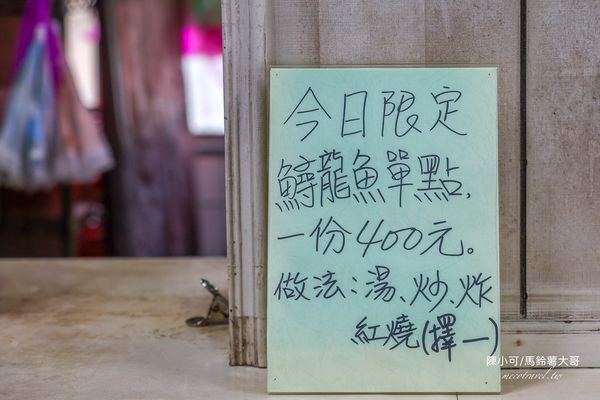 今日限定
鱘龍魚單點,
一份400元。
做法:湯、炒、炸
紅燒(擇一)
陳小可/馬鈴薯大哥
mecotravel.tw